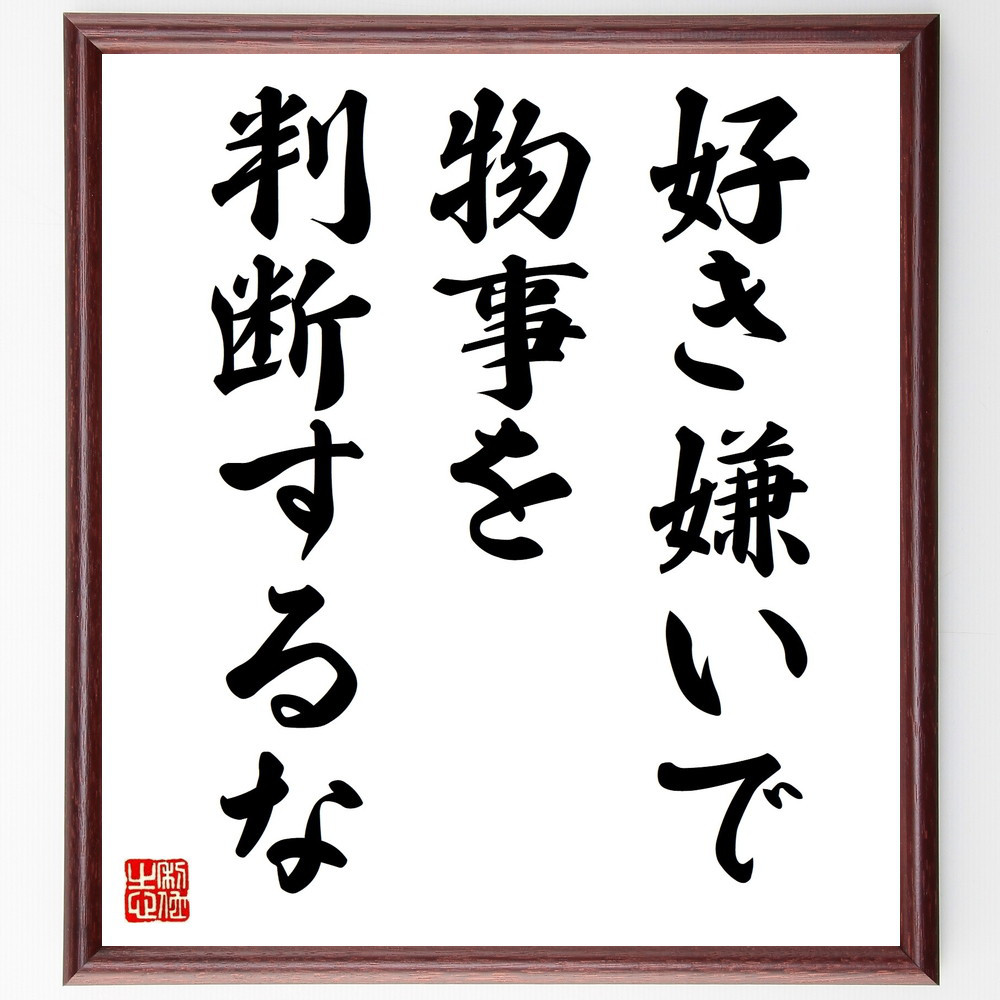 好き嫌いで
物事を
判断するな